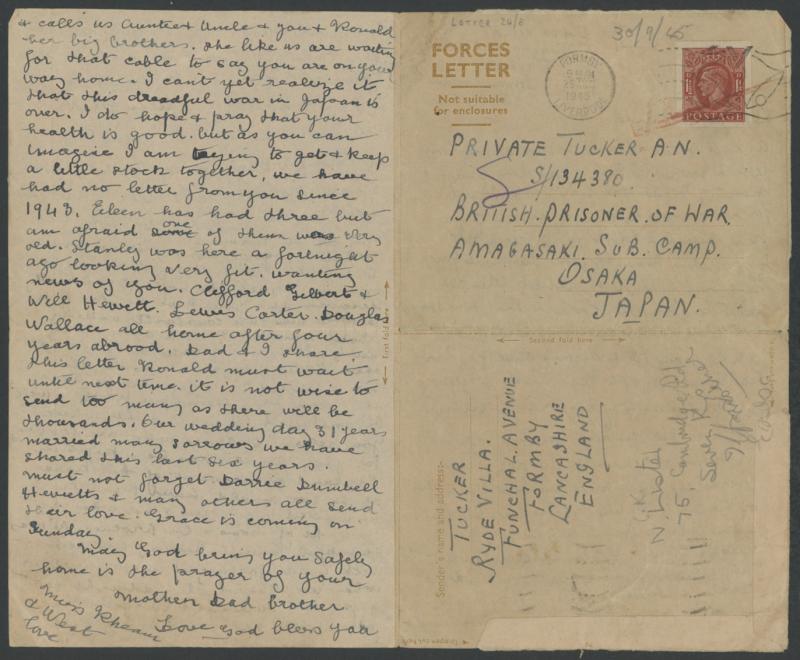 & calls us Auntie & Uncle & you & Ronald
her big brothers. She like us are waiting
for that cable to say you are on your
way home. I can't yet realize it
that this dreadful war in Japan is
over. I do hope & pray that your
health is good. but as you can
imagine I am trying to get & keep
a little stock together, we have
had no letter from you since
1943. Eileen has had three but
am afraid one of them was very
old. Stanley was here a fortnight
ago looking very fit. wanting
news of you. Clifford Gilbert &
Will Hewett. Lewis Carter. Douglas
Wallace all home after four
years abroad. Dad & I share
this letter Ronald must wait
until next time. it is not wise to
send too many as there will be
thousands. Our wedding day 31 years
married many sorrows we have
shared this last six years.
must not forget Darrie Dumbell
Hewetts & many others all send
their love. Grace is coming on
Sunday.
May God bring you safely
home is the prayer of your
Mother Dad brother
Love God bless you
Miss Rheam
& West
love
First fold here
LETTER 26/8
30/9/45
FORCES
LETTER
Not suitable
for enclosures
FORMBY
LIVERPOOL
1945
POSTAGE
PRIVATE TUCKER A.N.
S/134380.
BRITISH. PRISONER. OF WAR.
AMAGASAKI. SUB. CAMP.
OSAKA
JAPAN.
Second fold here
Sender's name and address:-
TUCKER
RYDE VILLA.
FUNCHAL. AVENUE
FORMBY
LANCASHIRE
ENGLAND
N Lister
75, Cambridge Rd.